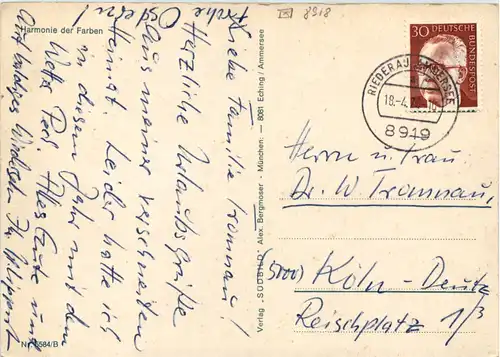 Harmonie der Farben
8918
30 DEUTSCHE BUNDESPOST
RIEDERAU AMMERSEE
18.-4.
8919
Frohe Ostern!
Liebe Familie Tramnau!
Herzliche Urlaubsgrüße
aus meiner verschneiten
Heimat. Leider hatte ich
in diesem Jahr mit dem
Wetter Pech. Alles Gute und
auf baldiges Wiedersehen Ihr
Verlag „SÜDBILD" Alex. Bergmoser - München: — 8081 Eching / Ammersee
Nr. 5584/B
Herrn u. Frau
Dr. W. Tramnau,
(5000) Köln-Deutz
Reischplatz 1/3